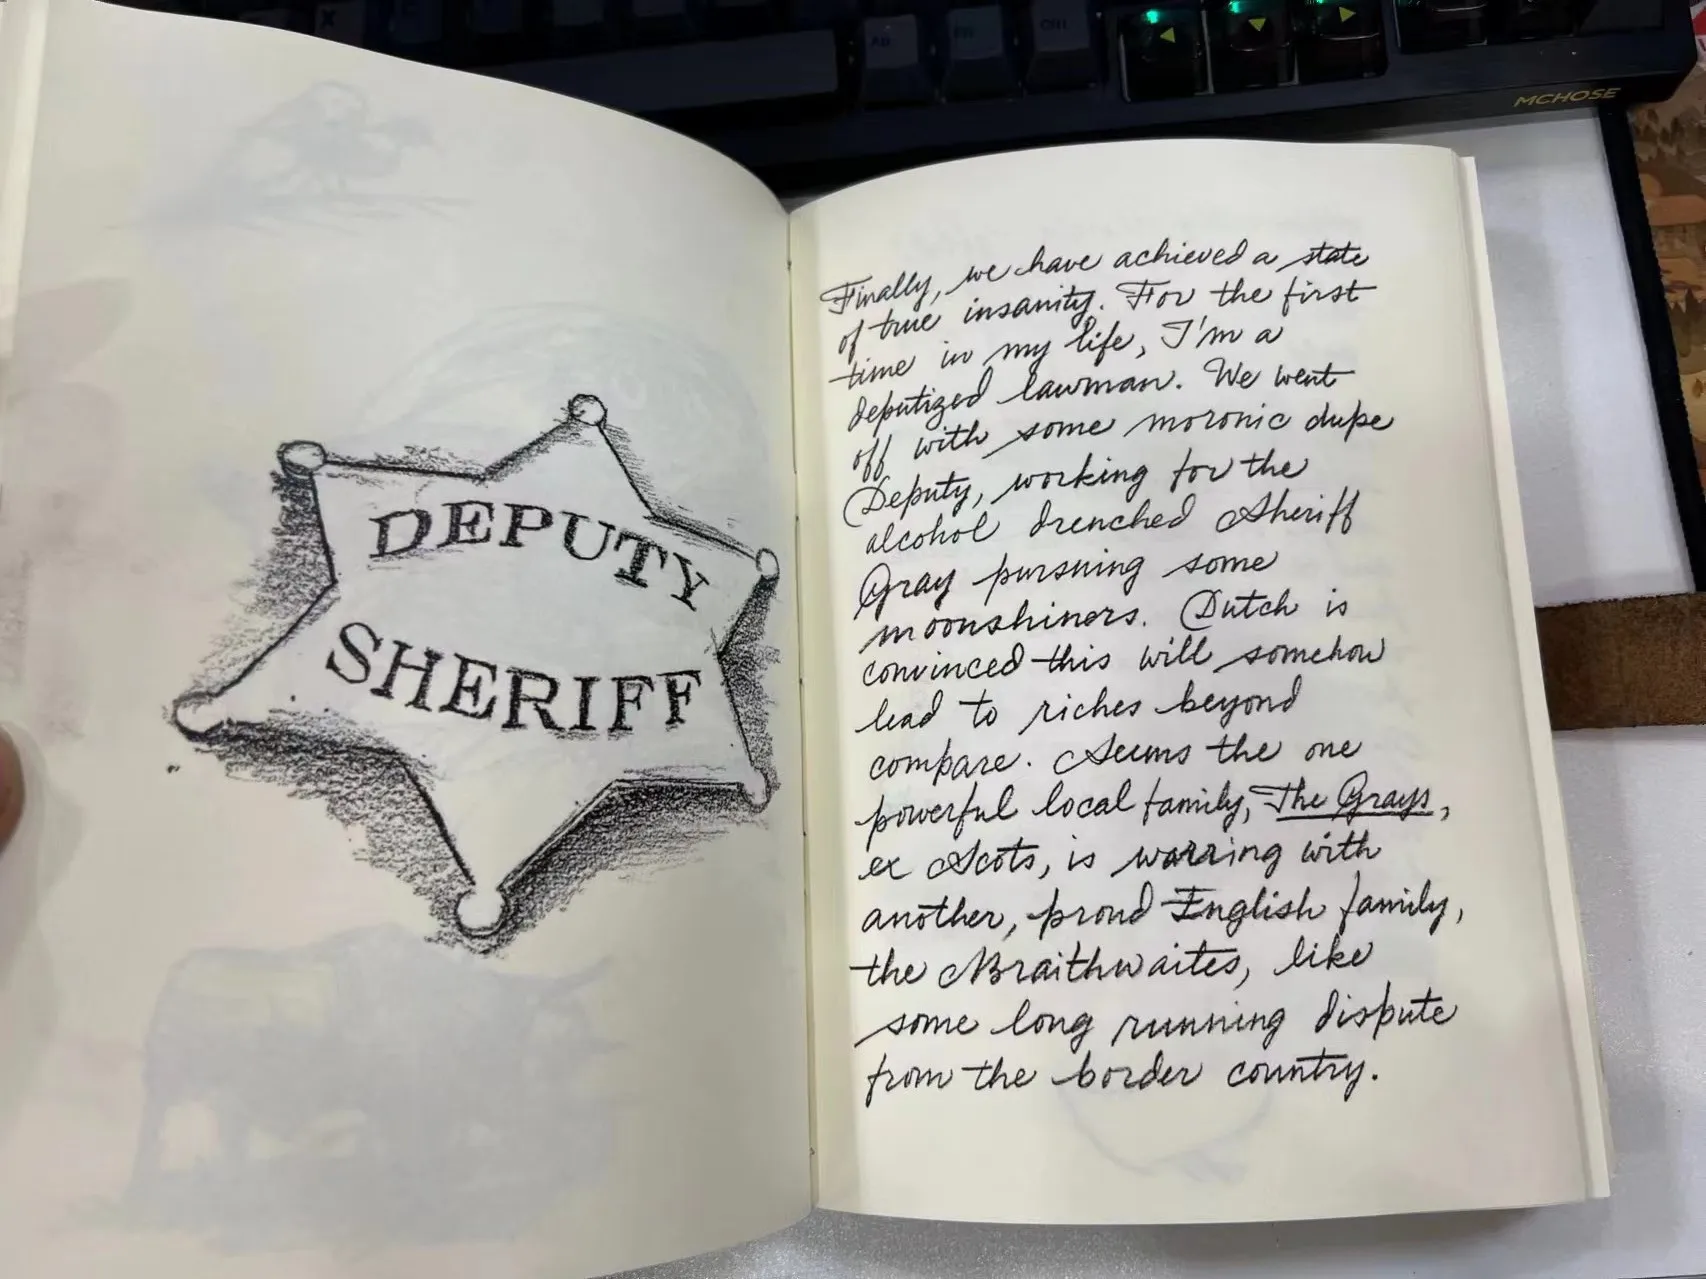 MCHOSE
DEPUTY
SHERIFF
Finally, we have achieved a state
of true insanity. For the first
time in my life, I'm a
deputized lawman. We went
off with some moronic dupe
Deputy, working for the
alcohol drenched Sheriff
Gray pursuing some
moonshiners. Dutch is
convinced this will somehow
lead to riches beyond
compare. Seems the one
powerful local family, The Grays,
ex Scots, is warring with
another, proud English family,
the Braithwaites, like
some long running dispute
from the border country.